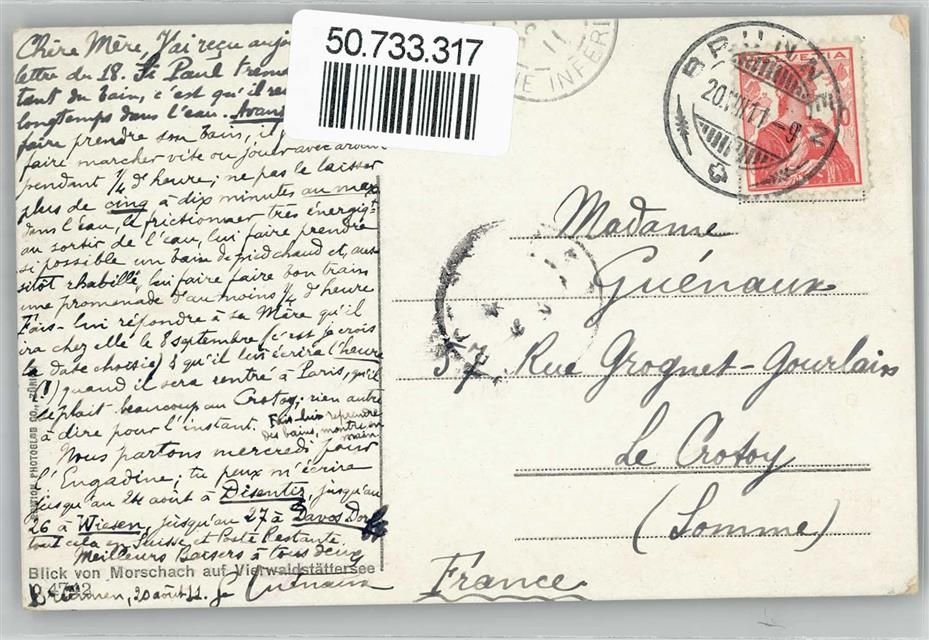 Chère Mère, J'ai reçu aujo
lettre du 18. Si Paul trem
tant du bain, c'est qu'il re
longtemps dans l'eau. Avan
faire prendre son bain, il
faire marcher vite ou jouer avec
pendant 1/4 d'heure; ne pas le laisser
plus de cinq à dix minutes au max
dans l'eau, le frictionner très énergiqt
au sortir de l'eau, lui faire prendre
si possible un bain de pied chaud et, aus
sitôt rhabillé, lui faire faire bon train
une promenade d'au moins 1/4 d'heure
Fais-lui répondre à sa Mère qu'il
ira chez elle le 8 septembre (c'est je crois
la date choisie) & qu'il lui écrira l'heure
(!) quand il sera rentré à Paris, qu'il
se plait beaucoup au Crotoy; rien autre
à dire pour l'instant. Fais-lui reprendre
des bains, montre en
main
Nous partons mercredi pour
l'Engadine; tu peux m'écrire
jusqu'au 24 août à Disentis, jusqu'au
26 à Wiesen, jusqu'au 27 à Davos Dorf
tout cela en Suisse et Poste Restante.
Meilleurs Baisers à tous deux
Guénaux
Brunnen, 20 août 11.
Blick von Morschach auf Vierwaldstättersee
EDITION PHOTOGLOB CO., ZÜRI
50.733.317
INFERI
11
BRUNNEN
20.VIII.11.-9
HELVETIA
Madame
Guénaux
37, Rue Grognet-Gourlain
Le Crotoy
(Somme)
France